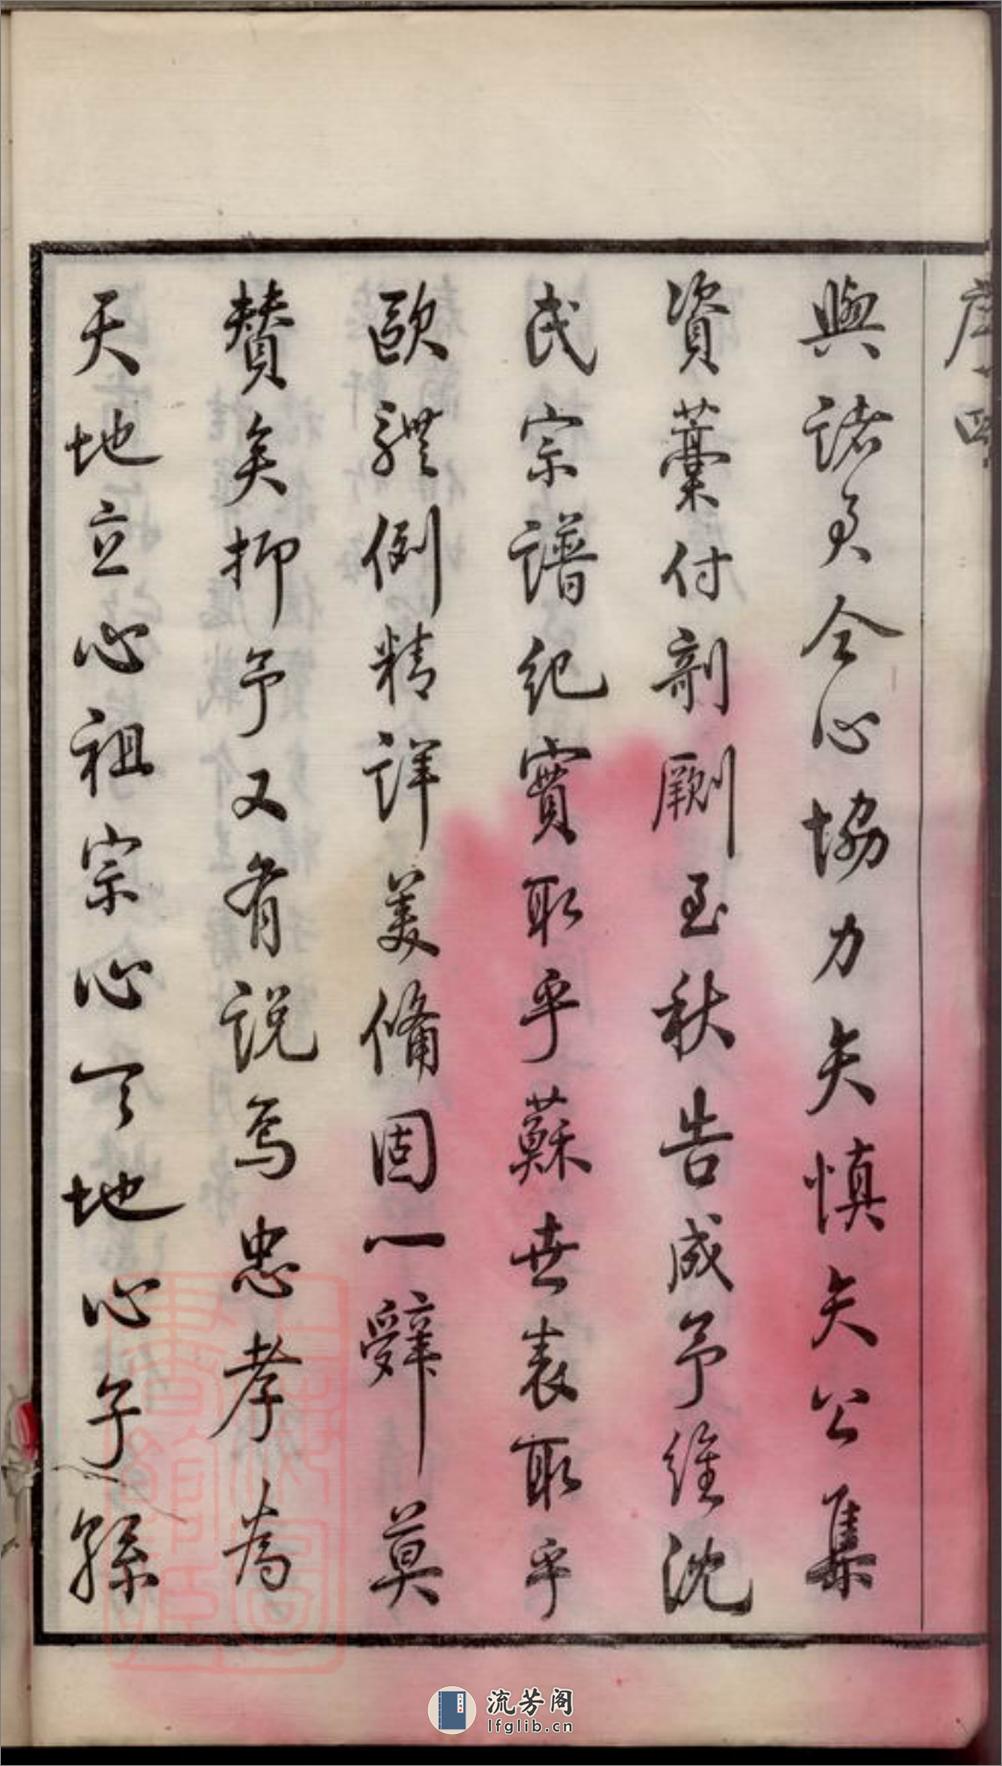 序 四
與諸君仝心協力矢慎矢公集
資藁付剞劂至秋告成予維沈
氏宗譜紀實取乎蘇世表取乎
歐體例精詳美備固一辭莫
賛矣抑予又有説焉忠孝為
天地立心祖宗心天地心子孫
流芳阁
lfglib.cn